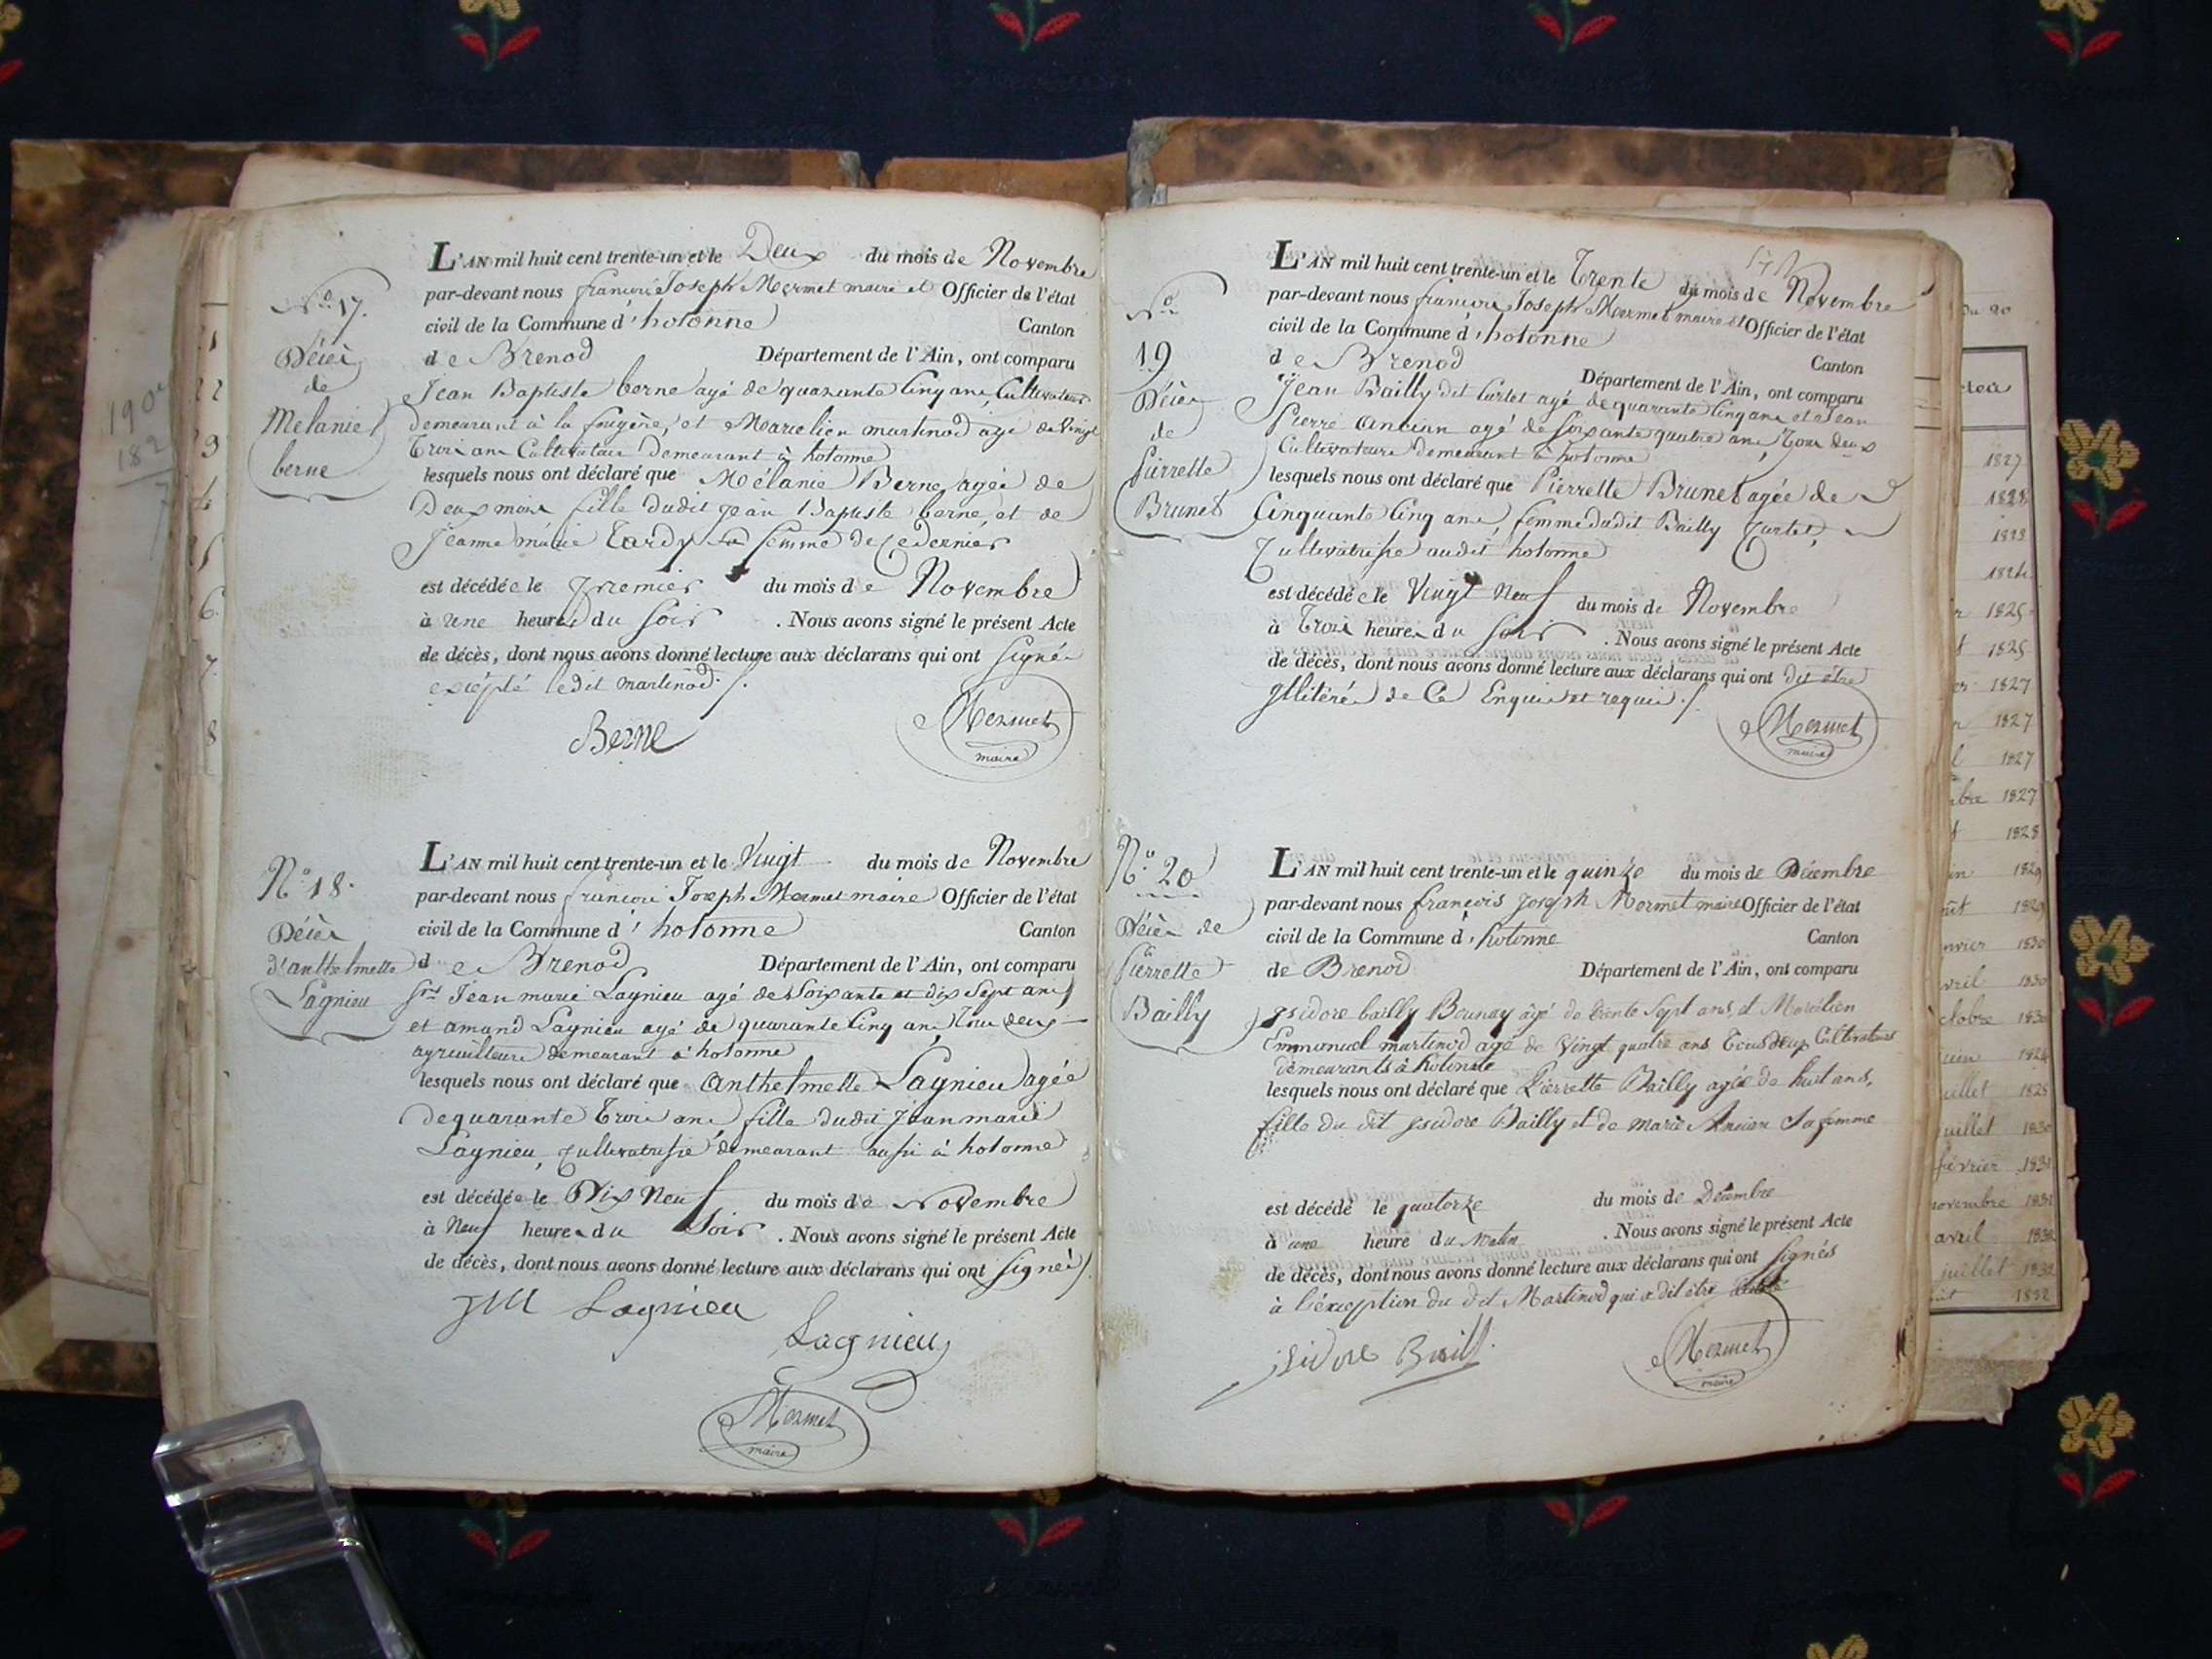 N.º 17.
Décès
de
Melanie
berne
L'AN mil huit cent trente-un et le Deux du mois de Novembre
par-devant nous françois Joseph Mermet maire et Officier de l'état
civil de la Commune d'hotonne Canton
de Brenod Département de l'Ain, ont comparu
Jean Baptiste berne agé de quarante Cinq ans, Cultivateur
demeurant à la fougère, et Marcelien martinod agé de Vingt
Trois ans Cultivateur demeurant à hotonne
lesquels nous ont déclaré que Mélanie Berne, agée de
Deux mois fille dudit jean Baptiste berne, et de
jeanne marie Tardy sa femme de ce dernier
est décédée le premier du mois de Novembre
à une heure du soir . Nous avons signé le présent Acte
de décès, dont nous avons donné lecture aux déclarans qui ont signé
excepté ledit martinod ./.
Berne
Mermet
maire
N.º 18.
Décès
d'anthelmette
Lagnieu
L'AN mil huit cent trente-un et le Vingt du mois de Novembre
par-devant nous françois Joseph Mermet maire Officier de l'état
civil de la Commune d'hotonne Canton
de Brenod Département de l'Ain, ont comparu
Srs Jean marie Lagnieu agé de Soixante et dix Sept ans
et amand Lagnieu agé de quarante Cinq ans Tous deux
agriculteurs demeurant à hotonne
lesquels nous ont déclaré que anthelmette Lagnieu agée
de quarante Trois ans fille dudit jean marie
Lagnieu, cultivatrisse demeurant aussi à hotonne
est décédée le Dix Neuf du mois de Novembre
à Neuf heures du soir . Nous avons signé le présent Acte
de décès, dont nous avons donné lecture aux déclarans qui ont signé ./.
JM Lagnieu
Lagnieu
Mermet
maire
N.º
19
Décès
de
Pierrette
Brunet
L'AN mil huit cent trente-un et le Trente du mois de Novembre
par-devant nous françois Joseph Mermet maire et Officier de l'état
civil de la Commune d'hotonne
de Brenod Canton
Département de l'Ain, ont comparu
Jean Bailly dit Curtet agé de quarante Cinq ans et Jean
Pierre Ancian agé de soixante quatre ans, Tous deux
Cultivateurs demeurant à hotonne
lesquels nous ont déclaré que Pierrette Brunet agée de
Cinquante Cinq ans, femme dudit Bailly Curtet,
Cultivatrisse audit hotonne
est décédée le Vingt Neuf du mois de Novembre
à Trois heures du soir . Nous avons signé le présent Acte
de décès, dont nous avons donné lecture aux déclarans qui ont dit être
illitérés de Ce Enquis et requis ./.
Mermet
maire
N.º 20
Décès de
Pierrette
Bailly
L'AN mil huit cent trente-un et le quinze du mois de Décembre
par-devant nous françois joseph Mermet maire Officier de l'état
civil de la Commune d'hotonne Canton
de Brenod Département de l'Ain, ont comparu
isidore bailly Bounay âgé de trente Sept ans, et Marcélien
Emmanuel martinod agé de Vingt quatre ans Tous deux Cultivateurs
demeurants à hotonne
lesquels nous ont déclaré que Pierrette Bailly agée de huit ans,
fille du dit isidore Bailly et de marie Ancian Sa femme
est décédé le quatorze du mois de Décembre
à une heure du Matin . Nous avons signé le présent Acte
de décès, dont nous avons donné lecture aux déclarans qui ont signés
à l'éxception du dit Martinod qui a dit être
isidore Bailly
Mermet
maire
1827
1828
1825
1825
1827
1827
1827
1827
1828
1829
1829
1830
avril 1830
octobre 1830
juillet 1825
juillet 1830
février 1831
novembre 1831
avril 1832
juillet 1832
1832